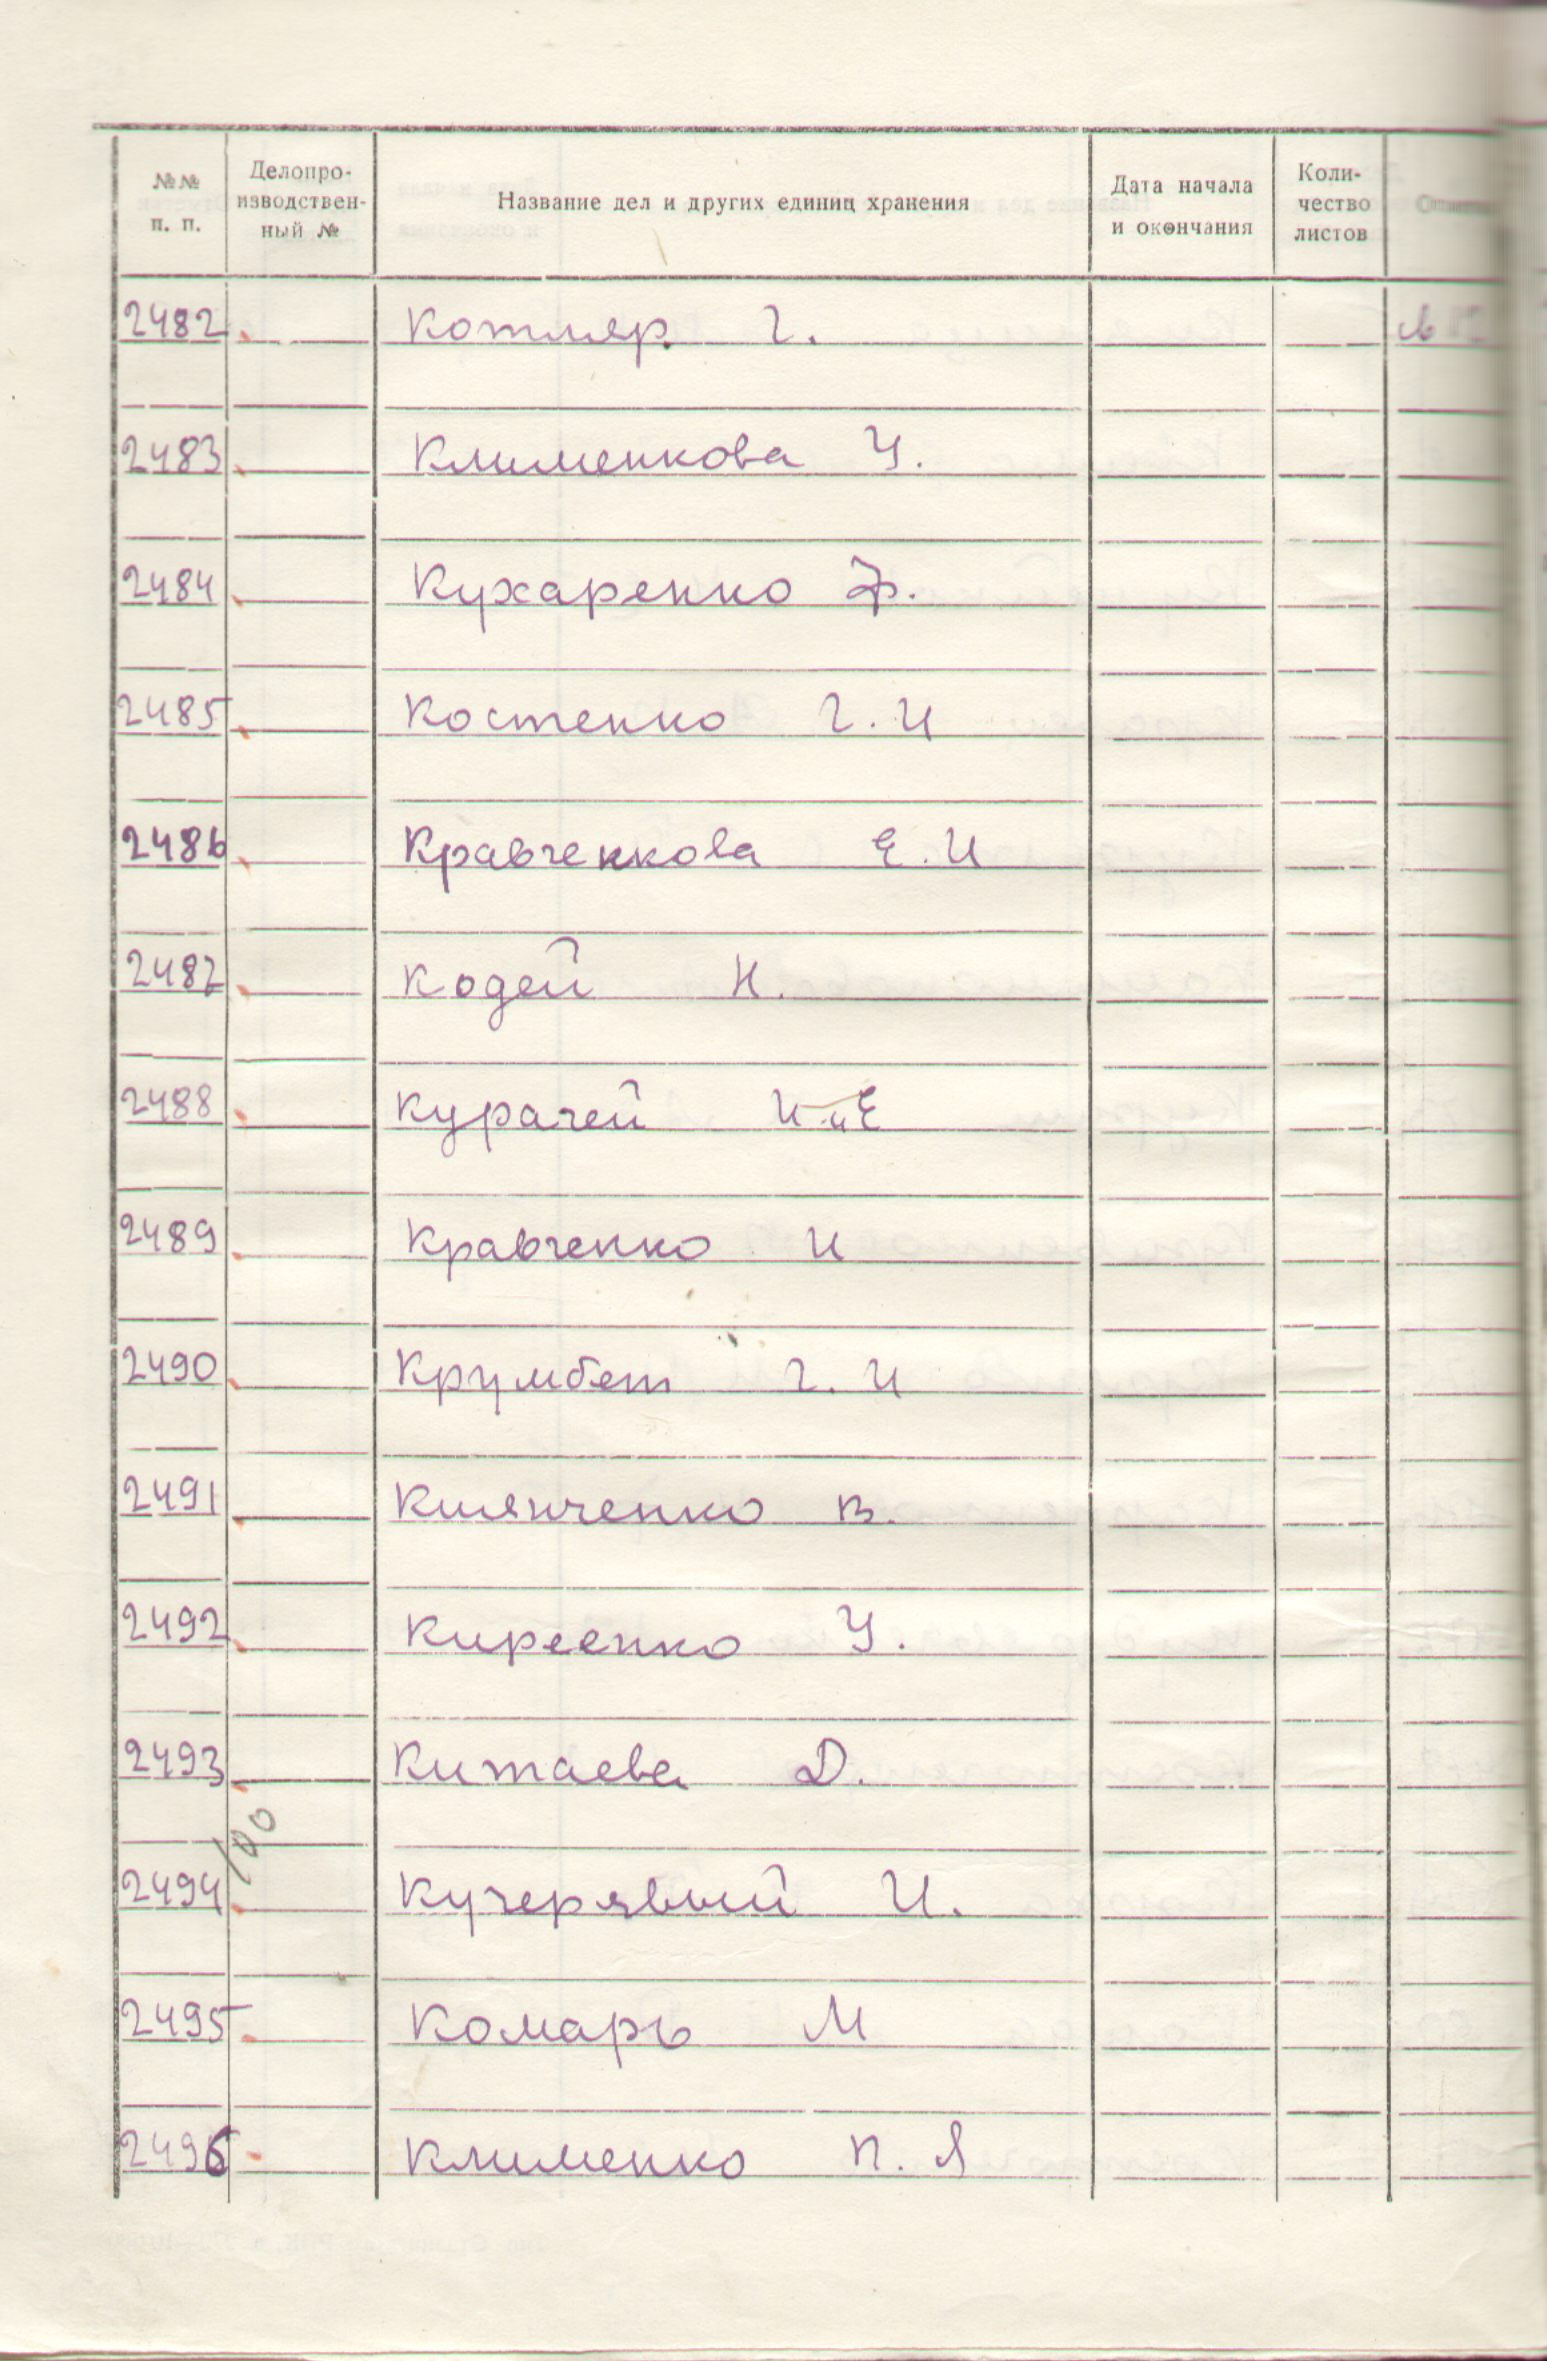 №№ п. п. Делопро-изводствен-ный № Название дел и других единиц хранения Дата начала и окончания Коли-чество листов
2482 Котляр Г.
2483 Клименкова У.
2484 Кухаренко Ф.
2485 Костенко Г. И
2486 Кравченкова Е. И
2487 Кодей Н.
2488 Курачей И и Е
2489 Кравченко И
2490 Крумбет Г. И
2491 Киянченко В.
2492 Киреенко У.
2493 Китаева Д.
100
2494 Кучерявый И.
2495 Комарь М
2496 Клименко П. Я